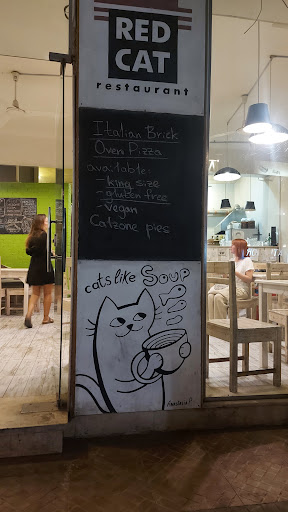 RED
CAT
restaurant
Italian Brick
Oven Pizza
available:
- king size
- gluten free
- vegan
Catzone pies
cats like Soup